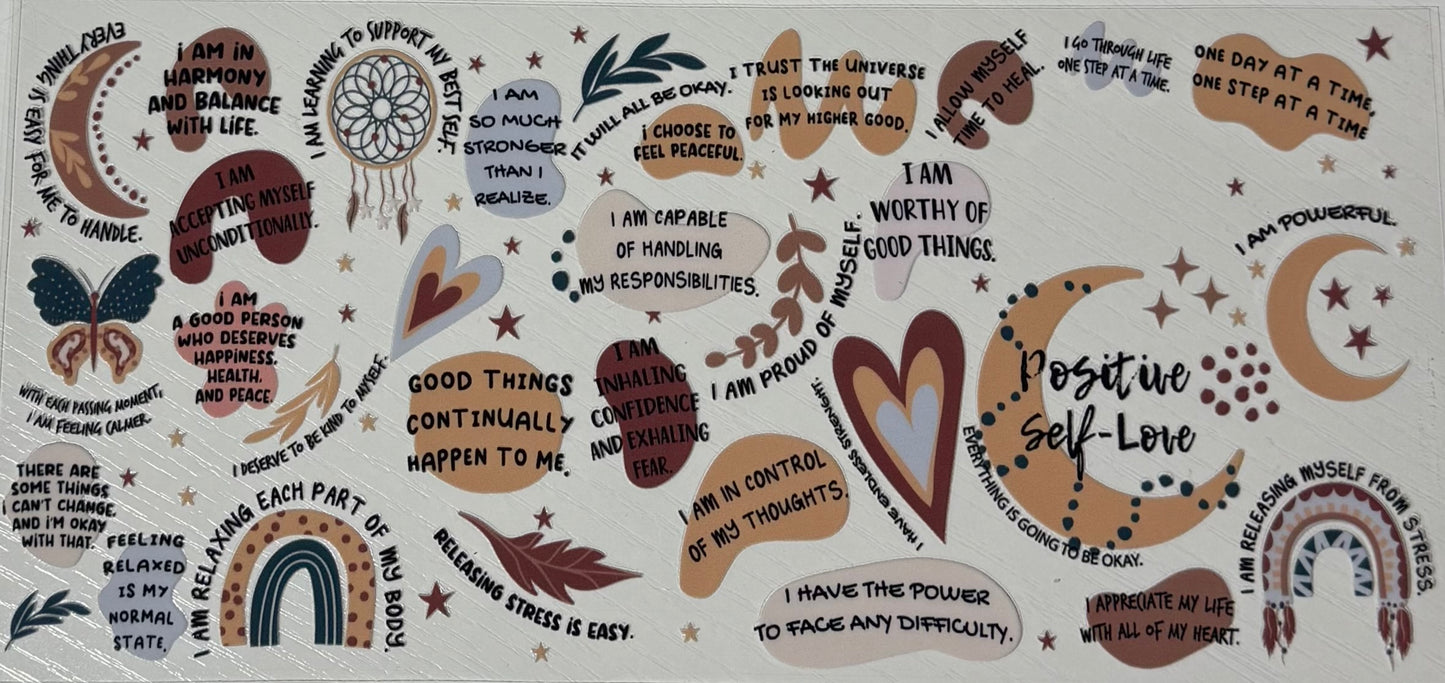 EVERYTHING IS EASY FOR ME TO HANDLE.
I AM IN
HARMONY
AND BALANCE
WITH LIFE.
I AM LEARNING TO SUPPORT MY BEST SELF.
I AM
SO MUCH
STRONGER
THAN I
REALIZE.
IT WILL ALL BE OKAY.
I CHOOSE TO
FEEL PEACEFUL.
I TRUST THE UNIVERSE
IS LOOKING OUT
FOR MY HIGHER GOOD.
I ALLOW MYSELF
TIME TO HEAL.
I GO THROUGH LIFE
ONE STEP AT A TIME.
ONE DAY AT A TIME,
ONE STEP AT A TIME
I AM
ACCEPTING MYSELF
UNCONDITIONALLY.
I AM CAPABLE
OF HANDLING
MY RESPONSIBILITIES.
I AM
WORTHY OF
GOOD THINGS.
I AM POWERFUL.
WITH EACH PASSING MOMENT,
I AM FEELING CALMER.
I AM
A GOOD PERSON
WHO DESERVES
HAPPINESS,
HEALTH,
AND PEACE.
I DESERVE TO BE KIND TO MYSELF.
GOOD THINGS
CONTINUALLY
HAPPEN TO ME.
I AM
INHALING
CONFIDENCE
AND EXHALING
FEAR.
I AM PROUD OF MYSELF.
I HAVE ENDLESS STRENGHT.
Positive
Self-Love
EVERYTHING IS GOING TO BE OKAY.
THERE ARE
SOME THINGS
I CAN'T CHANGE,
AND I'M OKAY
WITH THAT.
FEELING
RELAXED
IS MY
NORMAL
STATE.
I AM RELAXING EACH PART OF MY BODY.
RELEASING STRESS IS EASY.
I AM IN CONTROL
OF MY THOUGHTS.
I HAVE THE POWER
TO FACE ANY DIFFICULTY.
I APPRECIATE MY LIFE
WITH ALL OF MY HEART.
I AM RELEASING MYSELF FROM STRESS.